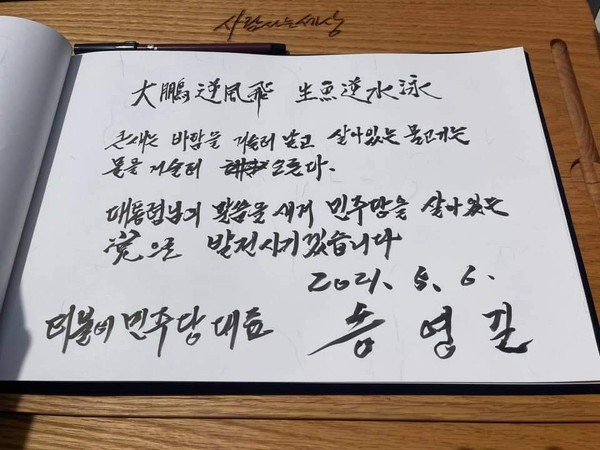 사람사는세상
大鵬逆風飛 生魚逆水泳
큰새는 바람을 거슬러 날고 살아있는 물고기는
물을 거슬러 오른다.
대통령님의 말씀을 새겨 민주당을 살아있는
党으로 발전시키겠습니다
2021. 5. 6.
더불어민주당 대표 송영길